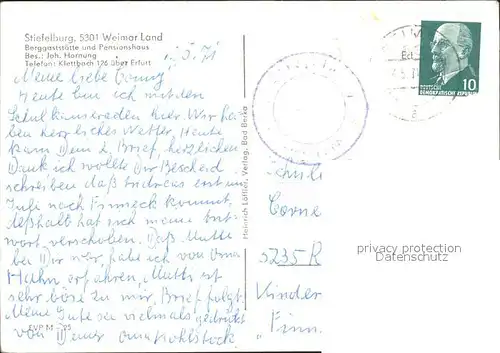 Stiefelburg, 5301 Weimar Land
Berggaststätte und Pensionshaus
Bes.: Joh. Hornung
Telefon: Klettbach 126 über Erfurt
Meine liebe
Heute bin ich mit den
Schulkameraden hier. Wir ha-
ben herrliches Wetter, Heute
kam Dein 2. Brief, herzlichen
Dank ich wollte Dir Bescheid
schreiben daß Andreas erst im
Juli nach Finneck kommt,
deßhalb hat sich meine Ant-
wort verschoben. Daß Mutti
bei Dir war habe ich von Oma
Hahn erfahren, Mutti ist
sehr böse zu mir, Brief folgt.
Meine Gute sei vielmals gedrückt
von Deiner
EVP M -,25
Heinrich Löffler, Verlag, Bad Berka
10
DEUTSCHE
DEMOKRATISCHE REPUBLIK
Corne
5235 R
Kinder
"Finn
privacy protection
Datenschutz